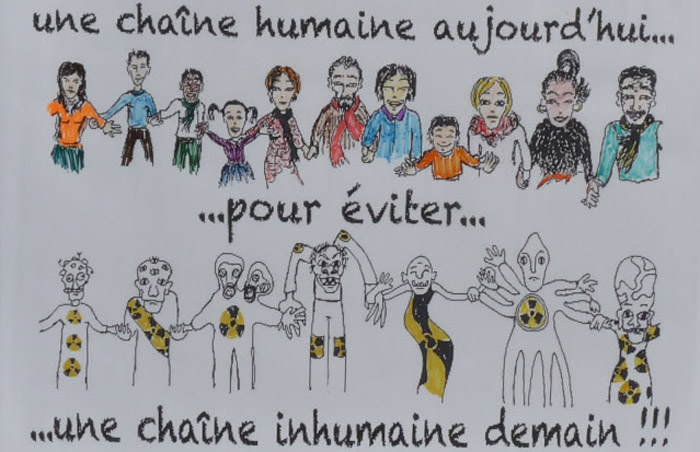 une chaîne humaine aujourd'hui...
...pour éviter...
...une chaîne inhumaine demain !!!